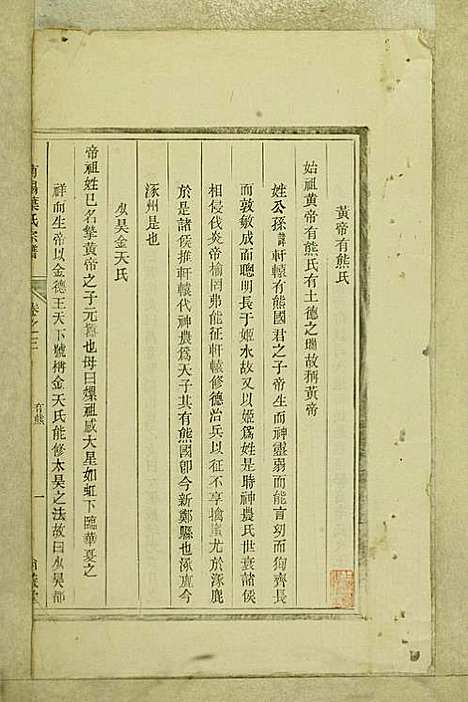 黃帝有熊氏
始祖黃帝有熊氏有土德之瑞故稱黃帝
姓公孫諱軒轅有熊國君之子帝生而神靈弱而能言幼而徇齊長
而敦敏成而聰明長于姬水故又以姬爲姓是時神農氏世衰諸侯
相侵伐炎帝榆罔弗能征軒轅修德治兵以征不享擒蚩尤於涿鹿
於是諸侯推軒轅代神農爲天子其有熊國卽今新鄭縣也涿鹿今
涿州是也
少昊金天氏
帝祖姓已名摯黃帝之子元囂也母曰嫘祖感大星如虹下臨華夏之
祥而生帝以金德王天下號稱金天氏能修太昊之法故曰少昊都
南陽葉氏宗譜
卷之三
有熊
一